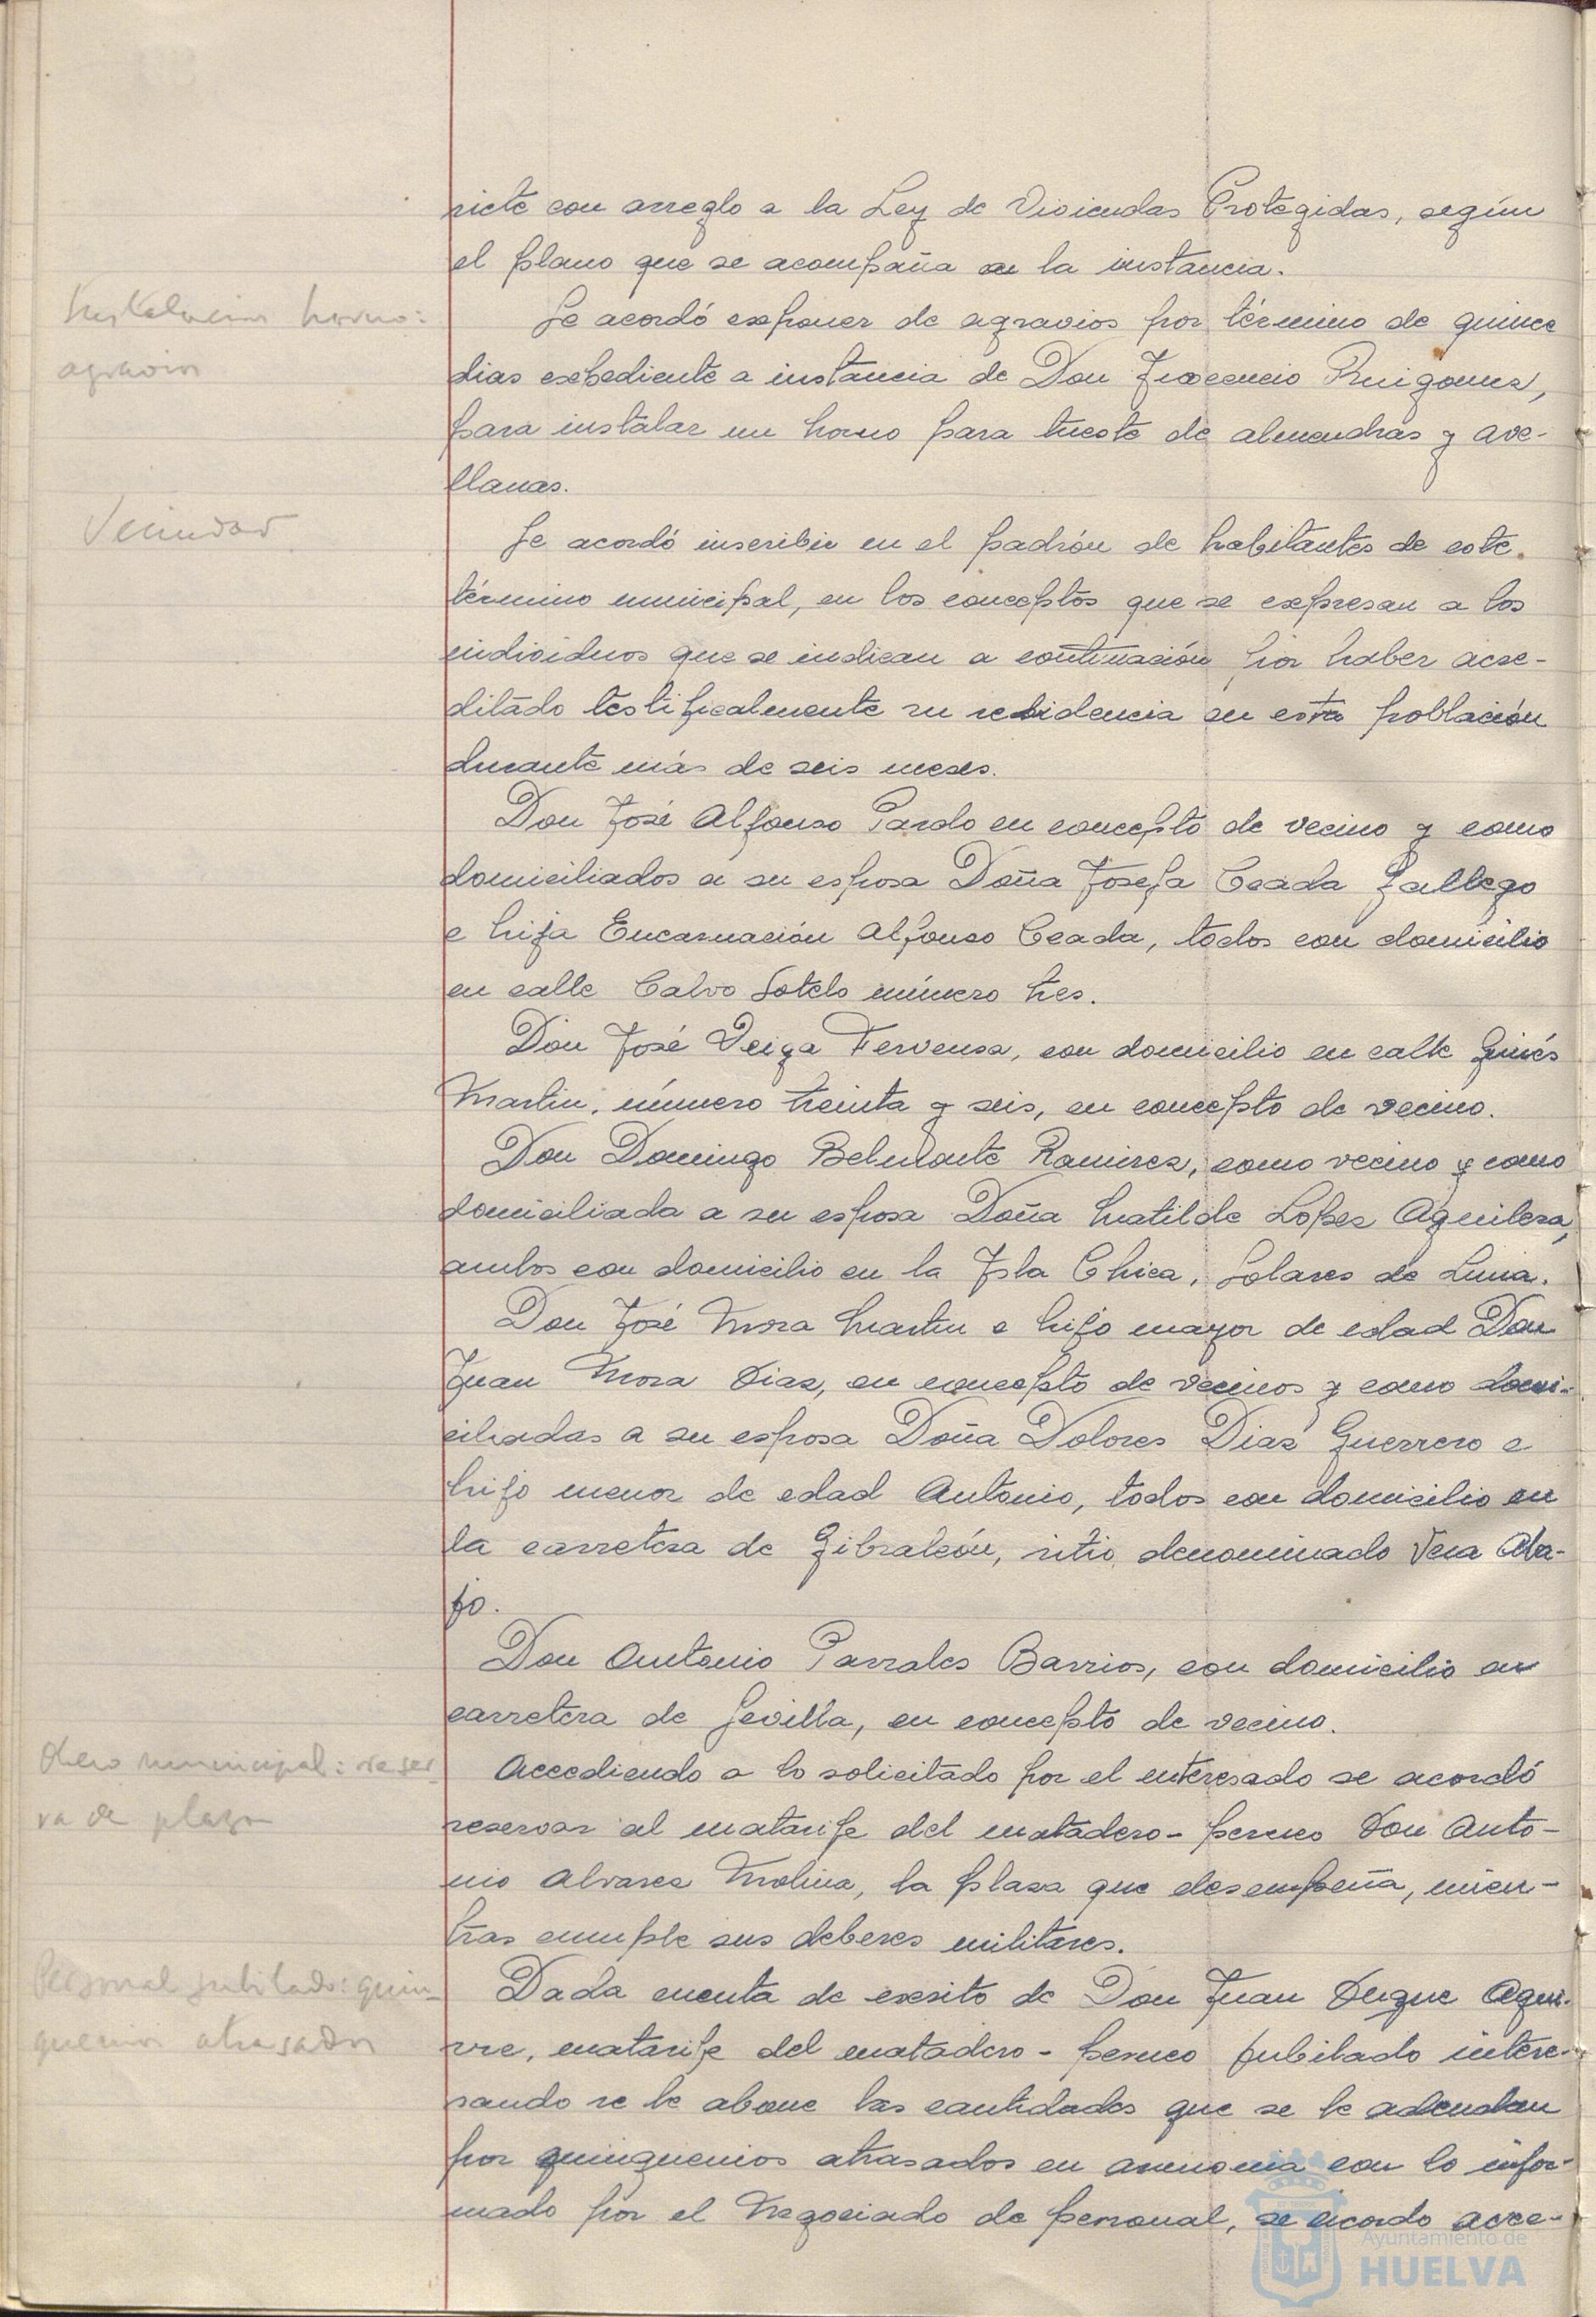 siete con arreglo a la Ley de Viviendas Protegidas, según
el plano que se acompaña en la instancia.
Instalacion horno:
agravios
Se acordó exponer de agravios por término de quince
dias expediente a instancia de Don Inocencio Ruigomez,
para instalar un horno para tueste de almendras y ave-
llanas.
Vecindad
Se acordó inscribir en el padrón de habitantes de este
término municipal, en los conceptos que se expresan a los
individuos que se indican a continuación por haber acre-
ditado testificalmente su residencia en esta población
durante más de seis meses.
Don José Alfonso Pardo en concepto de vecino y como
domiciliados a su esposa Doña Josefa Ceada Gallego
e hija Encarnación Alfonso Ceada, todos con domicilio
en calle Calvo Sotelo número tres.
Don José Veiga Fervensa, con domicilio en calle Ginés
Martin, número treinta y seis, en concepto de vecino.
Don Domingo Belmonte Ramirez, como vecino y como
domiciliada a su esposa Doña Matilde Lopez Aguilera,
ambos con domicilio en la Isla Chica, Solares de Luna.
Don José Mora Martin e hijo mayor de edad Don
Juan Mora Diaz, en concepto de vecinos y como domi-
ciliadas a su esposa Doña Dolores Dias Guerrero e
hijo menor de edad Antonio, todos con domicilio en
la carretera de Gibraleón, sitio denominado Vena Aba-
jo.
Don Antonio Parrales Barrios, con domicilio en
carretera de Sevilla, en concepto de vecino.
Obrero municipal: reser
va de plaza
Accediendo a lo solicitado por el interesado se acordó
reservar al matarife del matadero-perneo Don Anto-
nio Alvarez Molina, la plaza que desempeña, mien-
tras cumple sus deberes militares.
Personal jubilado: quin-
quenios atrasados
Dada cuenta de escrito de Don Juan Duque Agui-
rre, matarife del matadero-perneo jubilado intere-
sando se le abone las cantidades que se le adeudan
por quinquenios atrasados en armonia con lo infor-
mado por el Negociado de personal, se acordo acce-
Ayuntamiento de
HUELVA